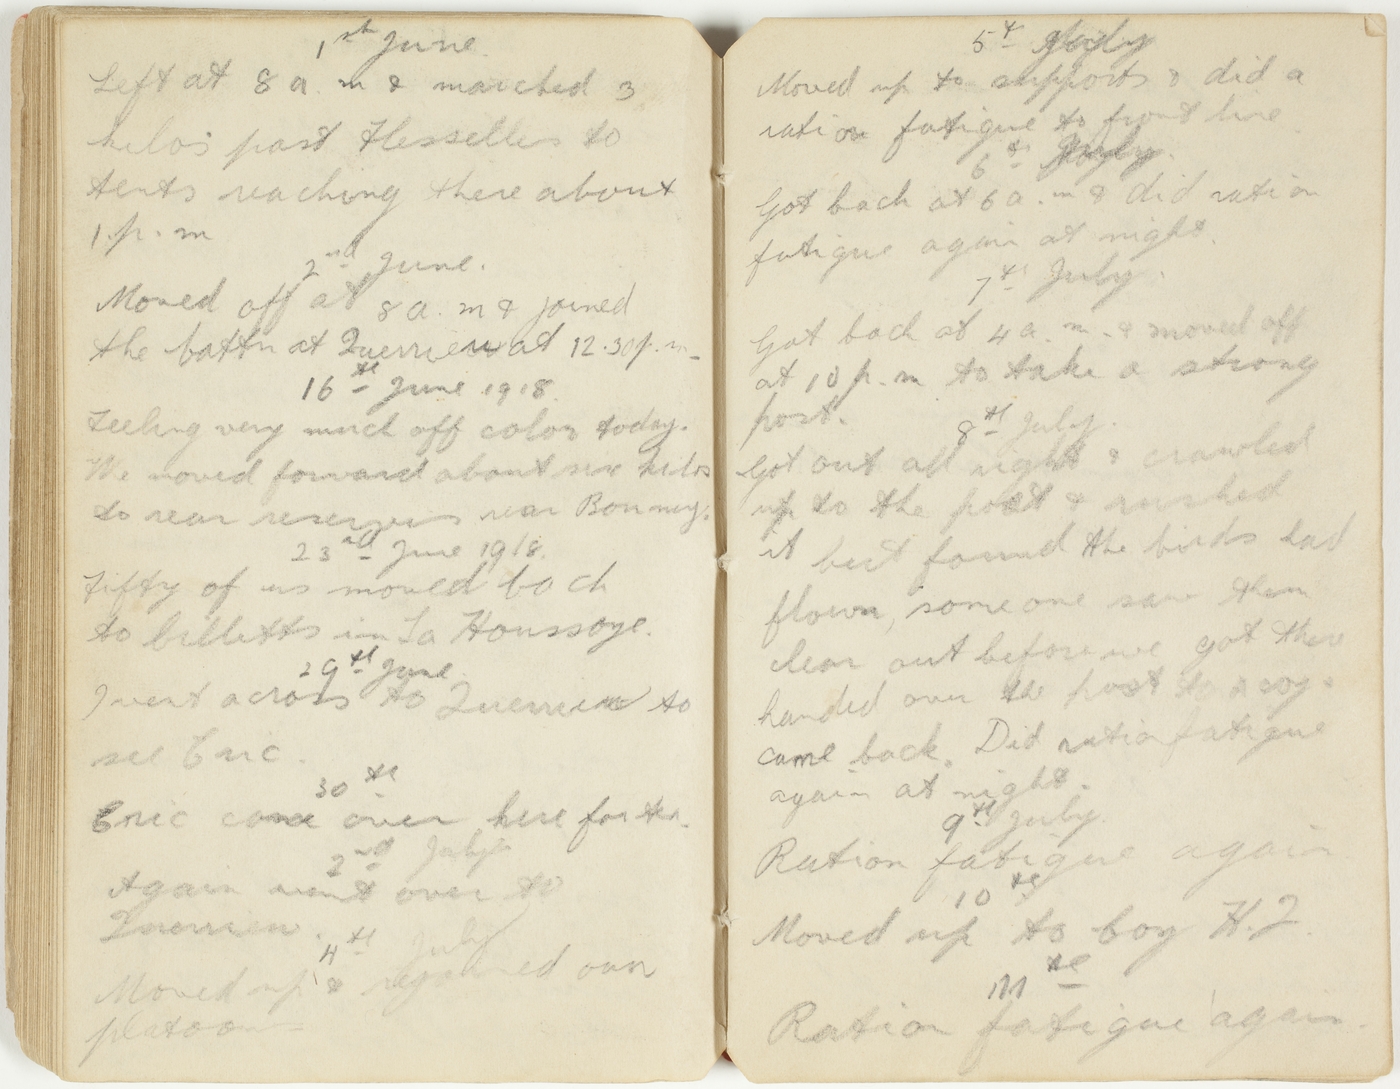 1st June.
Left at 8 a.m & marched 3
kilos past Flesselles to
tents reaching there about
1.p.m
2nd June.
Moved off at 8 a.m & joined
the battn at Querrieu at 12.30p.m-
16th June 1918.
Feeling very much off color today.
We moved forward about six kilos
to rear reserves near Bonnay.
23rd June 1918.
Fifty of us moved back
to billetts in La Houssoye.
29th June
I went across to Querrieu to
see Eric.
30th
Eric came over here for tea.
2nd July
Again went over to
Querrieu.
4th July
Moved up & rejoined our
platoon
5th July
Moved up to supports & did a
ration fatigue to front line.
6th July.
Got back at 6 a.m & did ration
fatigue again at night.
7th July.
Got back at 4 a.m. & moved off
at 10 p.m to take a strong
post.
8th July.
Got out all right & crawled
up to the post & rushed
it but found the birds had
flown, some one saw them
clear out before we got there
handed over the post to coy.
came back. Did ration fatigue
again at night.
9th July.
Ration fatigue again
10th
Moved up to coy H.Q.
11th
Ration fatigue again.